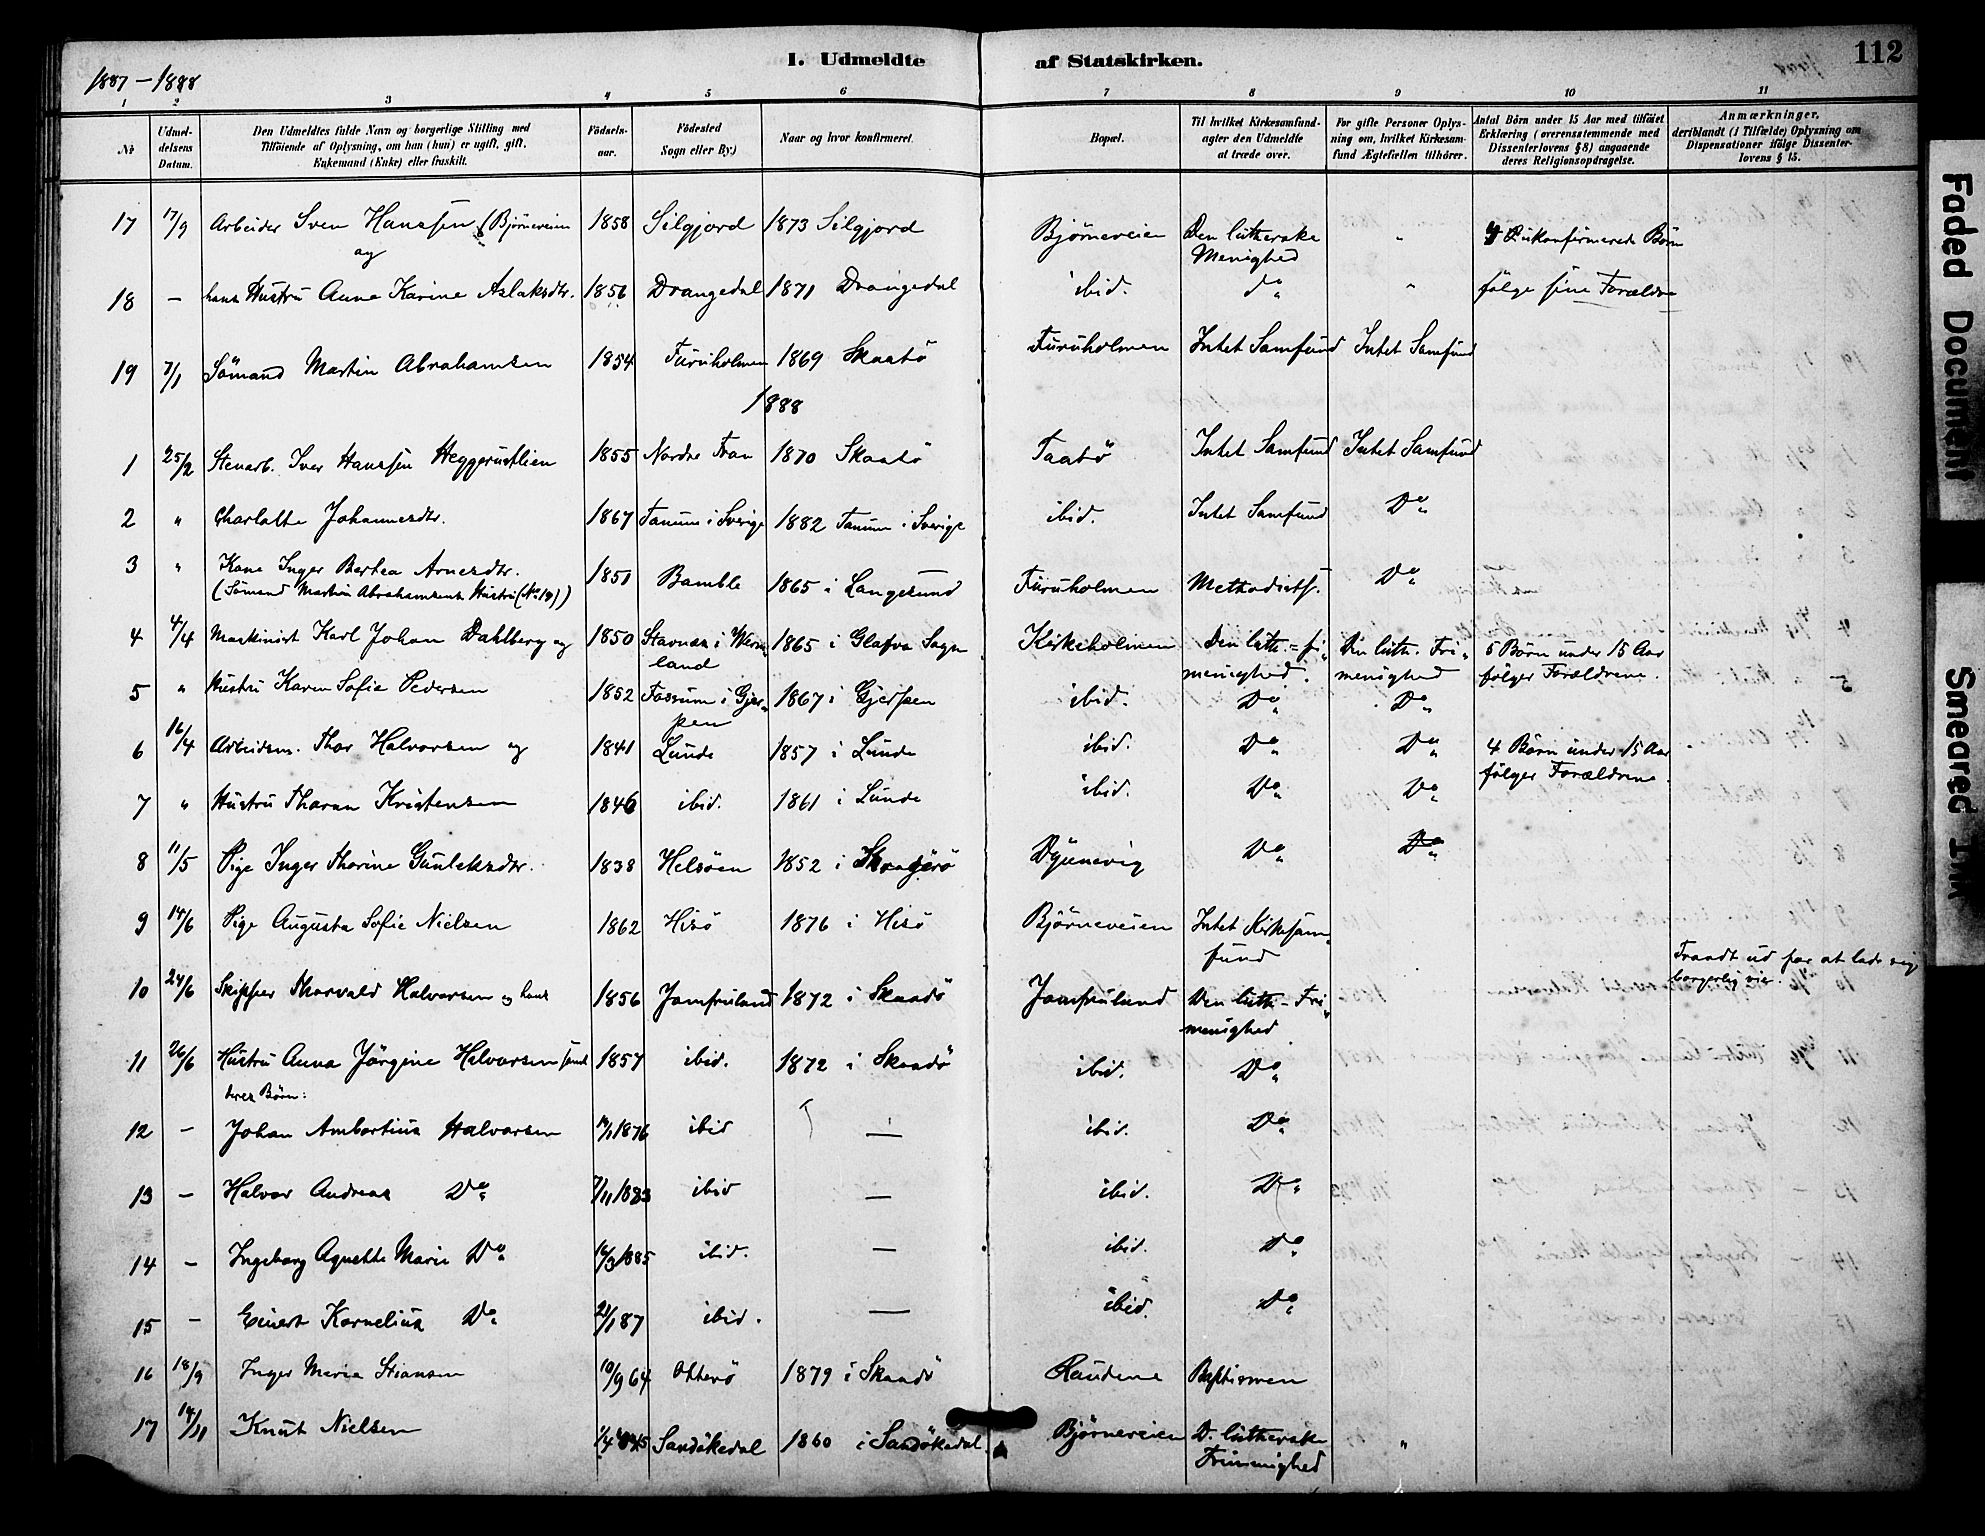 1887 – 1888
I. Udmeldte af Statskirken.
112
1 2 3 4 5 6 7 8 9 10 11
No
Udmeldelsens Datum.
Den Udmeldtes fulde Navn og borgerlige Stilling med
Tilføiende af Oplysning, om han (hun) er ugift, gift,
Enkemand (Enke) eller fraskilt.
Fødselsaar.
Fødested
Sogn eller By.)
Naar og hvor konfirmeret.
Bopæl.
Til hvilket Kirkesamfund
agter den Udmeldte
at træde over.
For gifte Personer Oplysning
om, hvilket Kirkesamfund
Ægtefællen tilhører.
Antal Børn under 15 Aar med tilføiet
Erklæring (overensstemmende med
Dissenterlovens § 8) angaaende
deres Religionsopdragelse.
Anmærkninger,
deriblandt (i Tilfælde) Oplysning om
Dispensationer ifølge Dissenterlovens
§ 15.
17 17/9 Arbeider Sven Hanssen (Bjørneveien 1858 Silgjord 1873 Silgjord Bjørneveien Den lutherske Menighed " ukonfirmerede Børn
og
18 – hans Hustru Anna Karine Aslaksdtr. 1856 Drangedal 1871 Drangedal ibid. do " følge sine Forældre
19 7/1 Sömand Martin Abrahamsen 1854 Furuholmen 1869 Skaatö Furuholmen Intet Samfund Intet Samfund
1888
1 25/2 Stenarb. Iver Hanssen Heggerustlien 1855 Nordre Fron 1870 Skaatö Taatö Intet Samfund Intet Samfund
2 " Charlotte Johannesdtr. 1867 Tanum i Sverige 1882 Tanum i Sverige ibid. Intet Samfund Do
3 " Kone Inger Bertea Arnesdtr. 1851 Bamble 1865 i Langesund Furuholmen Methodistf. Do
(Sömand Martin Abrahamsens Hustru (No 19))
4 4/4 Maskinist Karl Johan Dahlberg og 1850 Stavnäs i Wermland 1865 i Glafva Sogn Kirkeholmen Den luth. = frimenighed. Den luth. Frimenighed 5 Børn under 15 Aar
følger Forældrene.
5 " Hustru Karen Sofie Pedersen 1852 Fossum i Gjerpen 1867 i Gjerpen ibid. Do Do
6 16/4 Arbeidsm. Thor Halvorsen og 1841 Lunde 1857 i Lunde ibid. Do Do 4 Børn under 15 Aar
følger Forældrene.
7 " Hustru Thoran Kristensen 1846 ibid. 1861 i Lunde ibid. Do Do
8 11/5 Pige Inger Thorine Gunleksdtr. 1838 Helsöen 1852 i Dynevig Do Do
9 14/6 Pige Augusta Sofie Nielsen 1862 Hisö 1876 i Hisö Bjørneveien Intet Kirkesamfund
Traadt ud for at lade sig
borgerlig vie.
10 24/6 Skipper Thorvald Halvorsen og hans 1856 Jomfruland 1872 i Skaadö Jomfruland Den luth – Frimenighed
11 26/6 Hustru Anna Jörgine Halvorsen samt 1857 ibid. 1872 i Skaadö ibid. Do
deres Børn:
12 – Johan Ambortius Halvorsen 1876 ibid – ibid. Do
13 – Halvor Andreas Do 7/11 1883 ibid – ibid. Do
14 – Ingeborg Agnethe Marie Do 1885 ibid. – ibid. Do
15 – Einert Kornelius Do 21/1 87 ibid. – ibid. Do
16 18/9 Inger Maria Stiansen 10/9 64 Otterö 1879 i Skaadö Raudene Baptismen
17 14/11 Knut Nielsen 1/4 1845 Sandökedal 1860 i Sandökedal. Bjørneveien D. lutherske
Frimenighed "
Faded Document
Smeared Ink